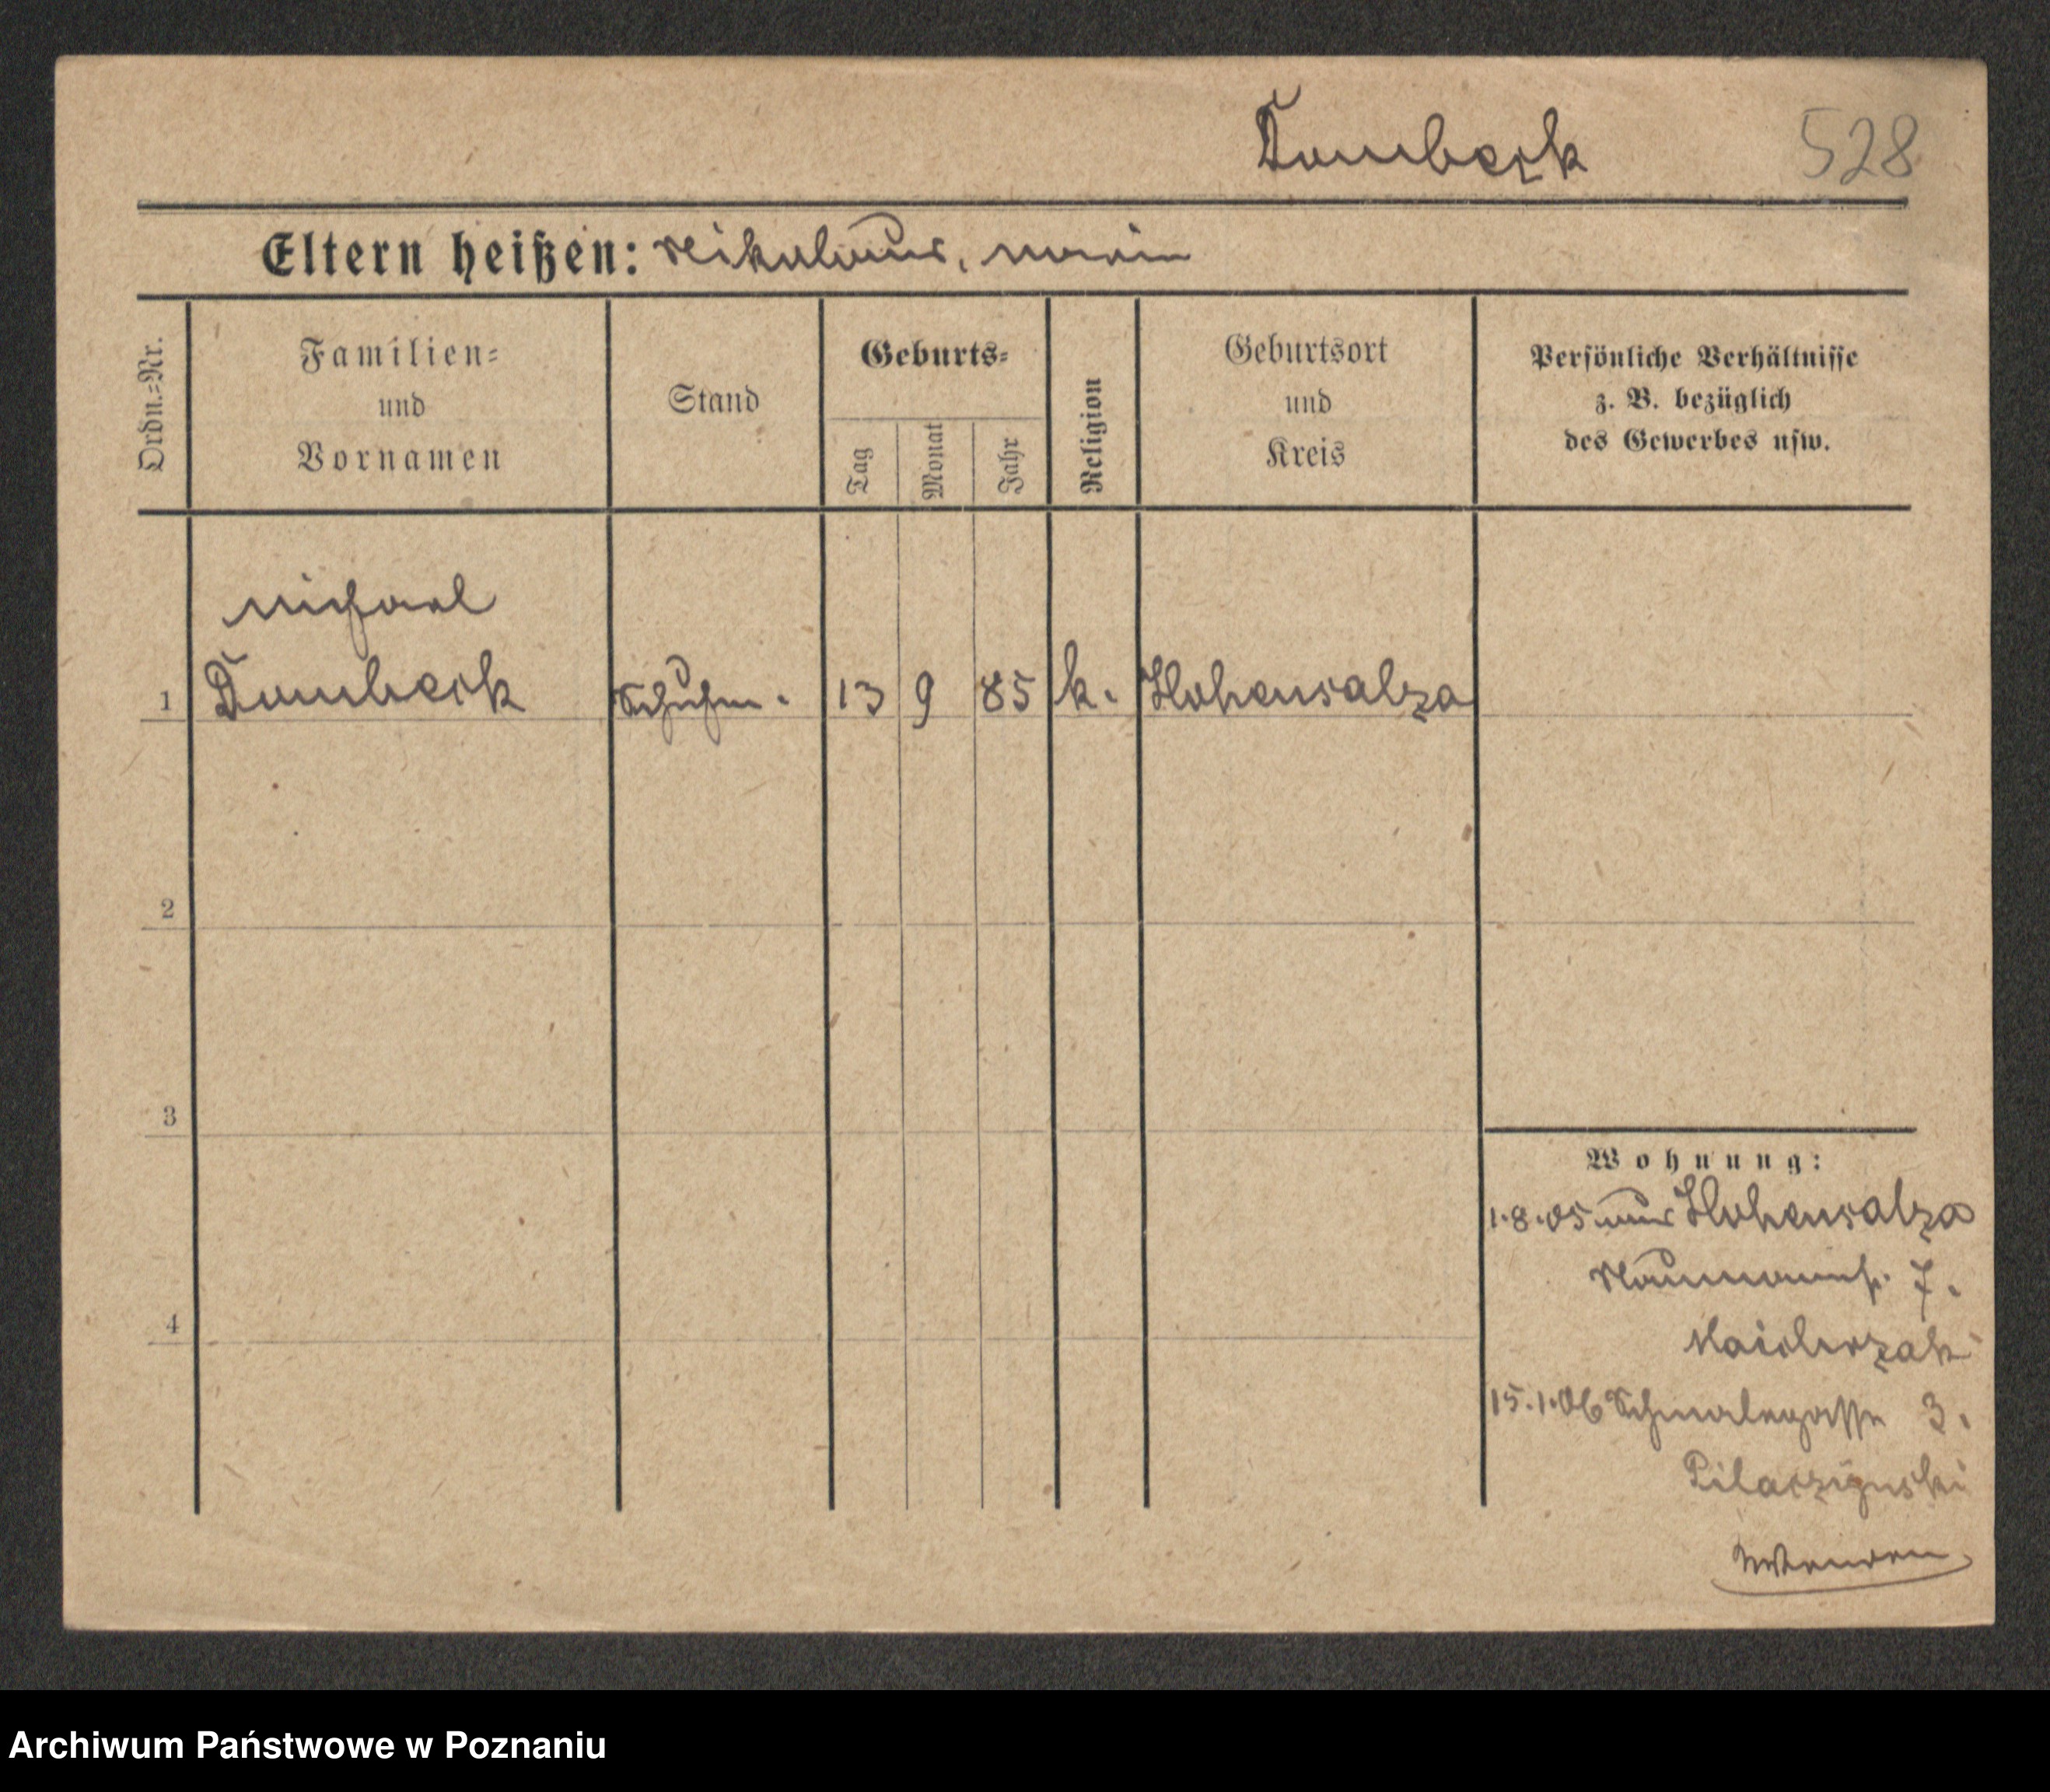 Dombeck 528
Eltern heißen: Nikolaus, Marie
Ordn.=Nr.
Familien=
und
Vornamen
Stand
Geburts=
Tag
Monat
Jahr
Religion
Geburtsort
und
Kreis
Persönliche Verhältnisse
z. B. bezüglich
des Gewerbes usw.
Michael
1 Dombeck Schuhm. 13 9 85 k. Hohensalza
2
3
4
Wohnung:
1.8.05 aus Hohensalza
Naumannst. 7.
15.1.06 Schmalegasse 3.
Archiwum Państwowe w Poznaniu